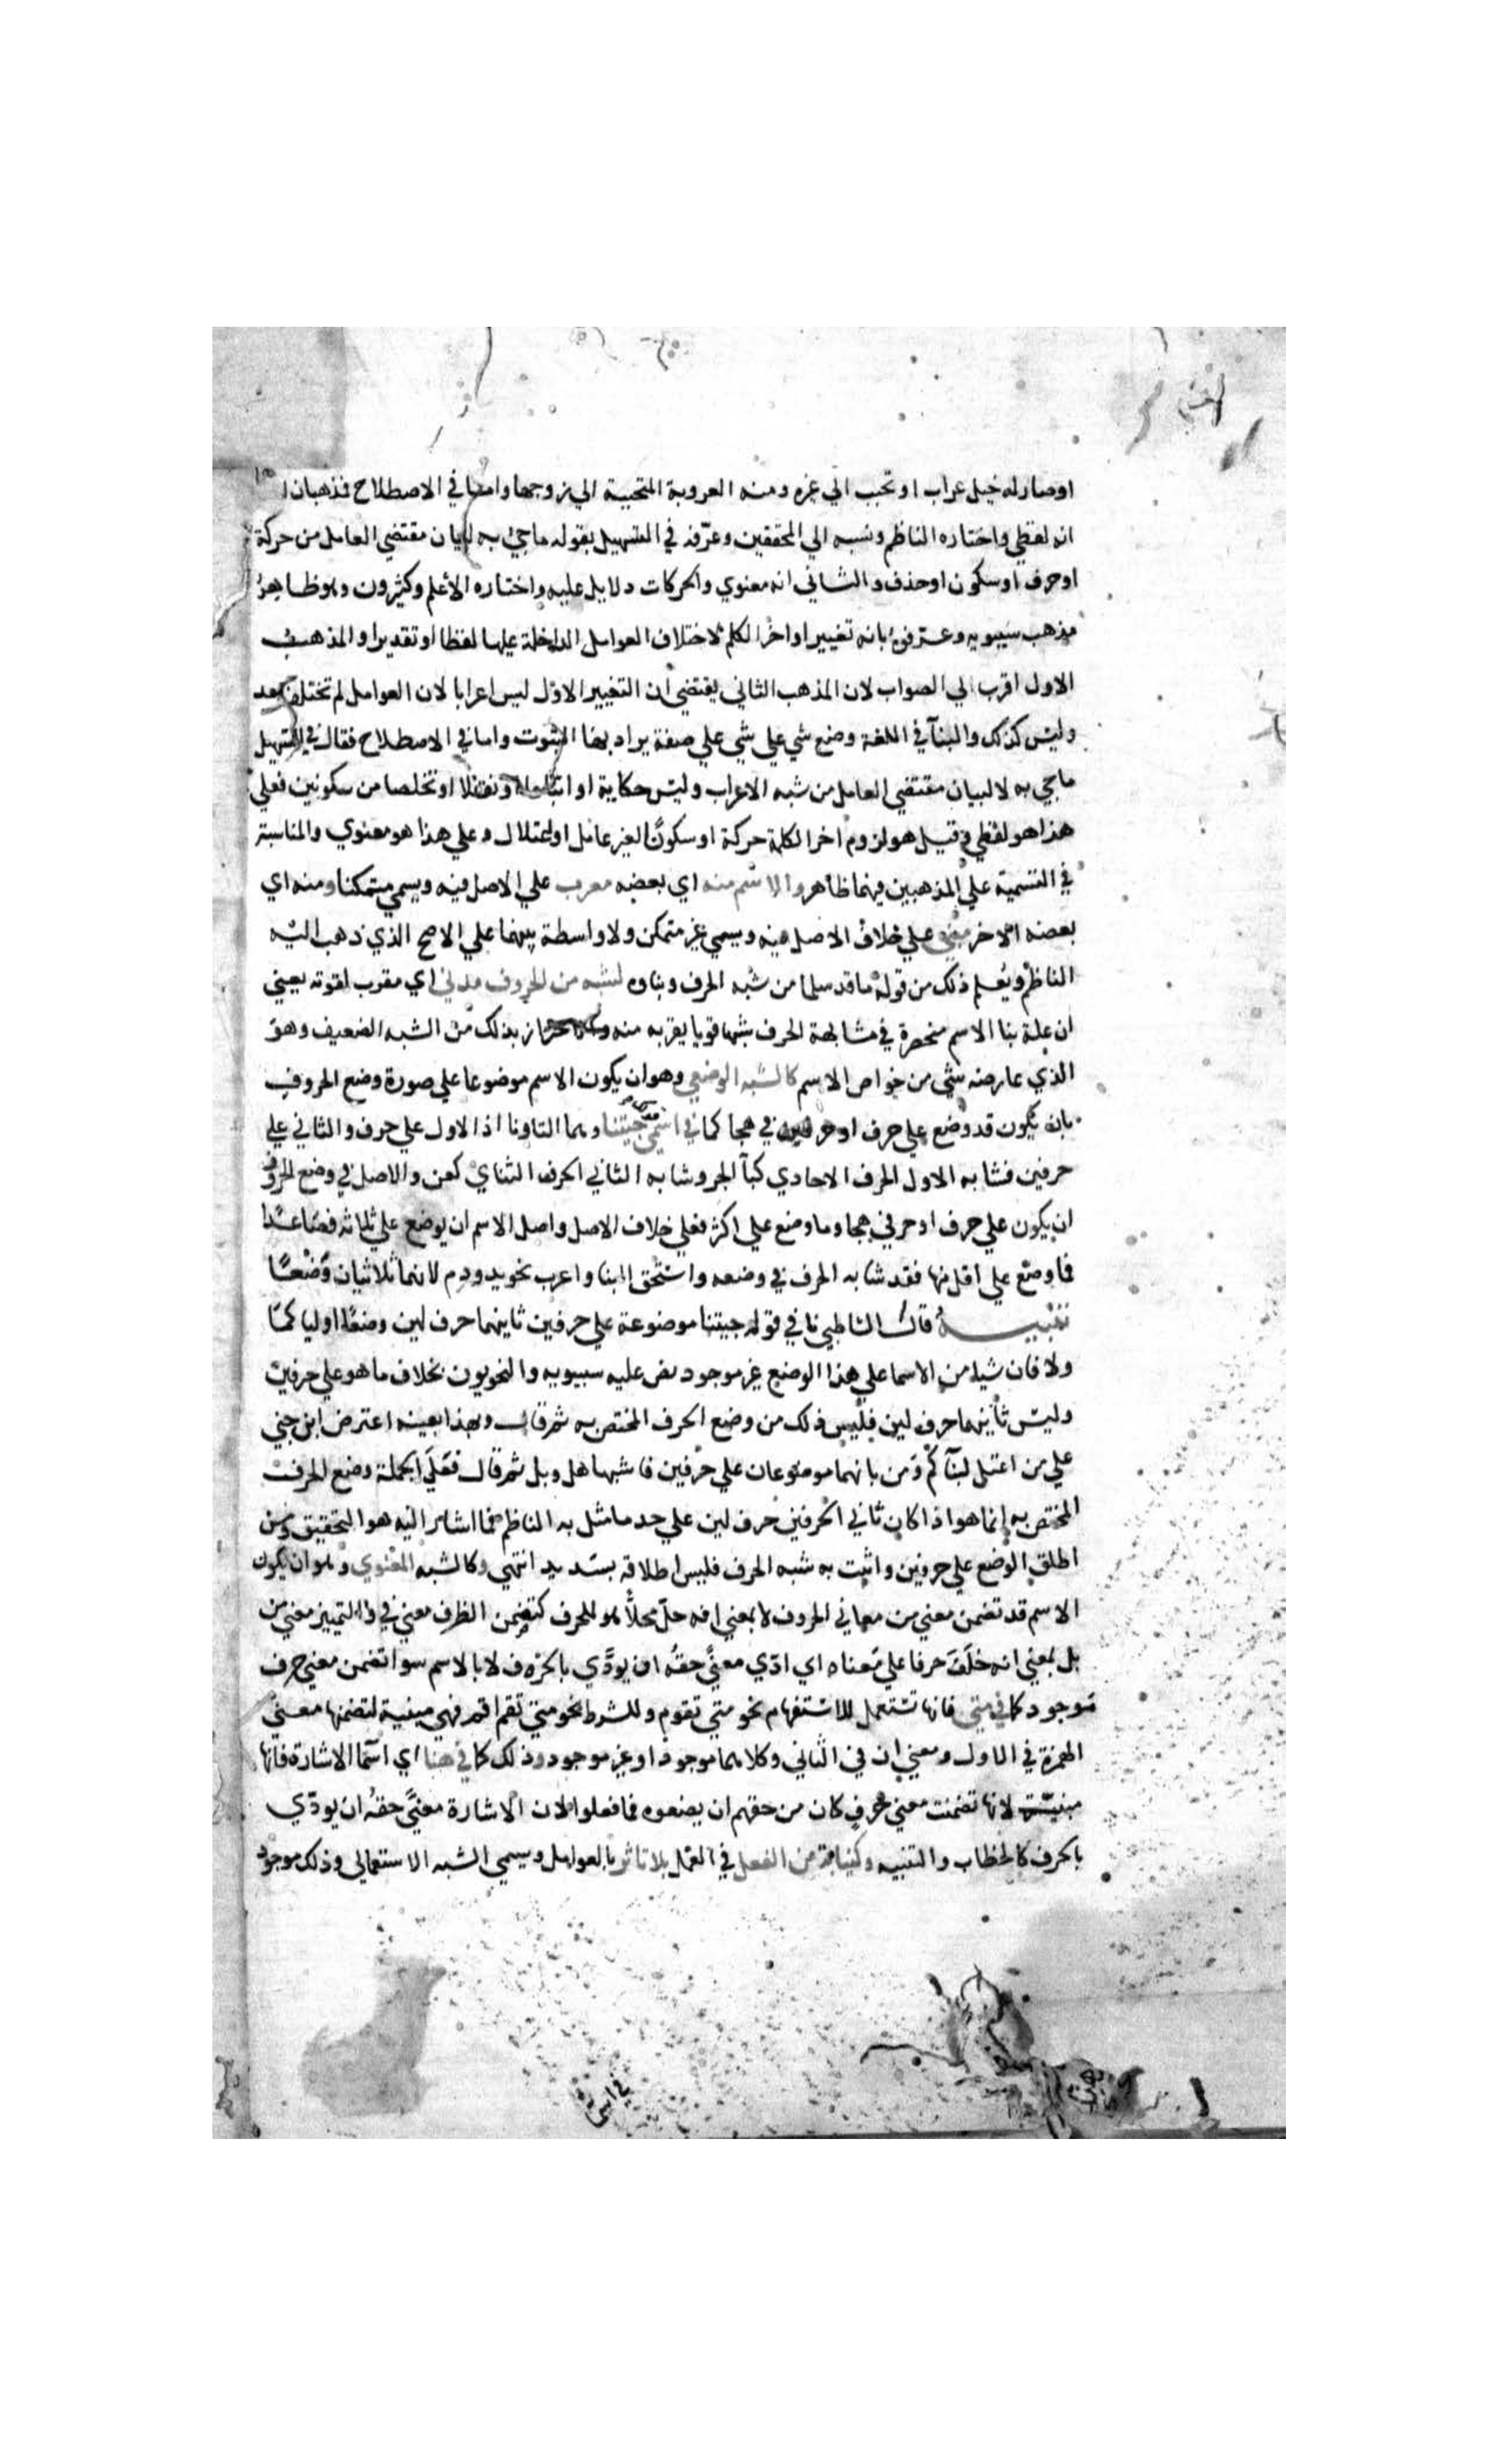 او صار له خيل عراب او تحبب الي غيره ومنه العروبة المتحببة الي زوجها واما في الاصطلاح فذهبان ا
انه لفظي واختاره الناظم ونسبه الي المحققين وعرّفه في التسهيل بقوله ما جئ به لبيان مقتضي العامل من حركة
او حرف او سكون او حذف والثاني انه معنوي والحركات دلايل عليه واختاره الأعلم وكثيرون وهو ظاهرُ
مذهب سيبويه وعرفوه بانه تغيير اواخر الكلم لاختلاف العوامل الداخلة عليها لفظا او تقديرا والمذهب
الاول اقرب الي الصواب لان المذهب الثاني يقتضي ان التغيير الاوّل ليس اعرابا لان العوامل لم تختلف بعد
وليس كذلك والبنآ في اللغة وضع شي علي شي علي صفة يراد بها الثبوت واما في الاصطلاح فقال في التسهيل
ما جي به لا لبيان مقتضي العامل من شبه الاعراب وليس حكاية او اتباعا او نقلا او تخلصا من سكونين فعلي
هذا هو لفظي وقيل هو لزوم اخر الكلمة حركة او سكونًا لغير عامل او اعتلال وعلي هذا هو معنوي والمناسبة
في التسمية علي المذهبين فيهما ظاهر والاسم منه اي بعضه معرب علي الاصل فيه ويسمي متمكنا ومنه اي
بعضه الاخر مبني علي خلاف الاصل فيه ويسمي غير متمكن ولا واسطة بينهما علي الاصح الذي ذهب اليه
الناظم ويُعلم ذلك من قوله ما قد سلما من شبه الحرف وبناوه لشبه من الحروف مدني اي مقرب لقوته يعني
ان علة بنا الاسم منحصرة في مشابهة الحرف شبها قويا يقربه منه والاحتراز بذلك من الشبه الضعيف وهو
الذي عارضه شي من خواص الاسم كالشبه الوضعي وهو ان يكون الاسم موضوعا علي صورة وضع الحروف
بان يكون قد وضع علي حرف او حرفين في هجا كما في اسمي جيتنا وهما التا ونا اذ الاول علي حرف والثاني علي
حرفين فشابه الاول الحرف الاحادي كبآ الجر وشابه الثاني الحرف الثنائ كعن والاصل في وضع الحروف
ان يكون علي حرف او حرفي هجا وما وضع علي اكثر فعلي خلاف الاصل واصل الاسم ان يوضع علي ثلاثه فصاعدا
فما وضع علي اقل منها فقد شابه الحرف في وضعه واستحق البنا واعرب نحو يد ودم لانهما ثلاثيان وضعًا
تنبيـــه قال الشاطبي نا في قوله جيتنا موضوعة علي حرفين ثانيهما حرف لين وضعًا اوليا كما
ولا فان شيا من الاسما علي هذا الوضع غير موجود نص عليه سيبويه والنحويون بخلاف ما هو علي حرفين
وليس ثانيهما حرف لين فليس ذلك من وضع الحرف المختص به ثم قال وبهذا بعينه اعترض ابن جني
علي من اعتل لبنآ كَمْ ومَن بانهما موضوعان علي حرفين فاشبها هل وبل ثم قال فعَلي الجملة وضع الحرف
المختص به انما هو اذا كان ثاني الحرفين حرف لين علي حد ما مثل به الناظم فما اشار اليه هو التحقيق ومن
اطلق الوضع علي حرفين واثبت به شبه الحرف فليس اطلاقه بسديد انتهي وكالشبه المعنوي وهو ان يكون
الاسم قد تضمن معني من معاني الحروف لا بمعني انه حلّ محلاًّ هو للحرف كتضمن الظرف معني في والتمييز معني من
بل بمعني انه خلَفَ حرفا علي مَعناه اي ادّي معنًي حقه ان يودَّي بالحرف لا بالاسم سوا تضمن معني حرف
موجود كما في متي فانها تستعمل للاستفهام نحو متي تقوم وللشرط نحو متي تقم اقم فهي مبنية لتضمنها معني
الهمزة في الاول ومعني ان في الثاني وكلاهما موجود او غير موجود وذلك كما في هنا اي اسما الاشارة فانها
مبنية لانها تضمنت معني حرفٍ كان من حقهم ان يضعوه فما فعلوا لان الاشارة معنًي حقهُ ان يودّي
بالحرف كالخطاب والتنبيه وكنيابة عن الفعل في العمل بلا تاثر بالعوامل ويسمي الشبه الاستعمالي وذلك موجود